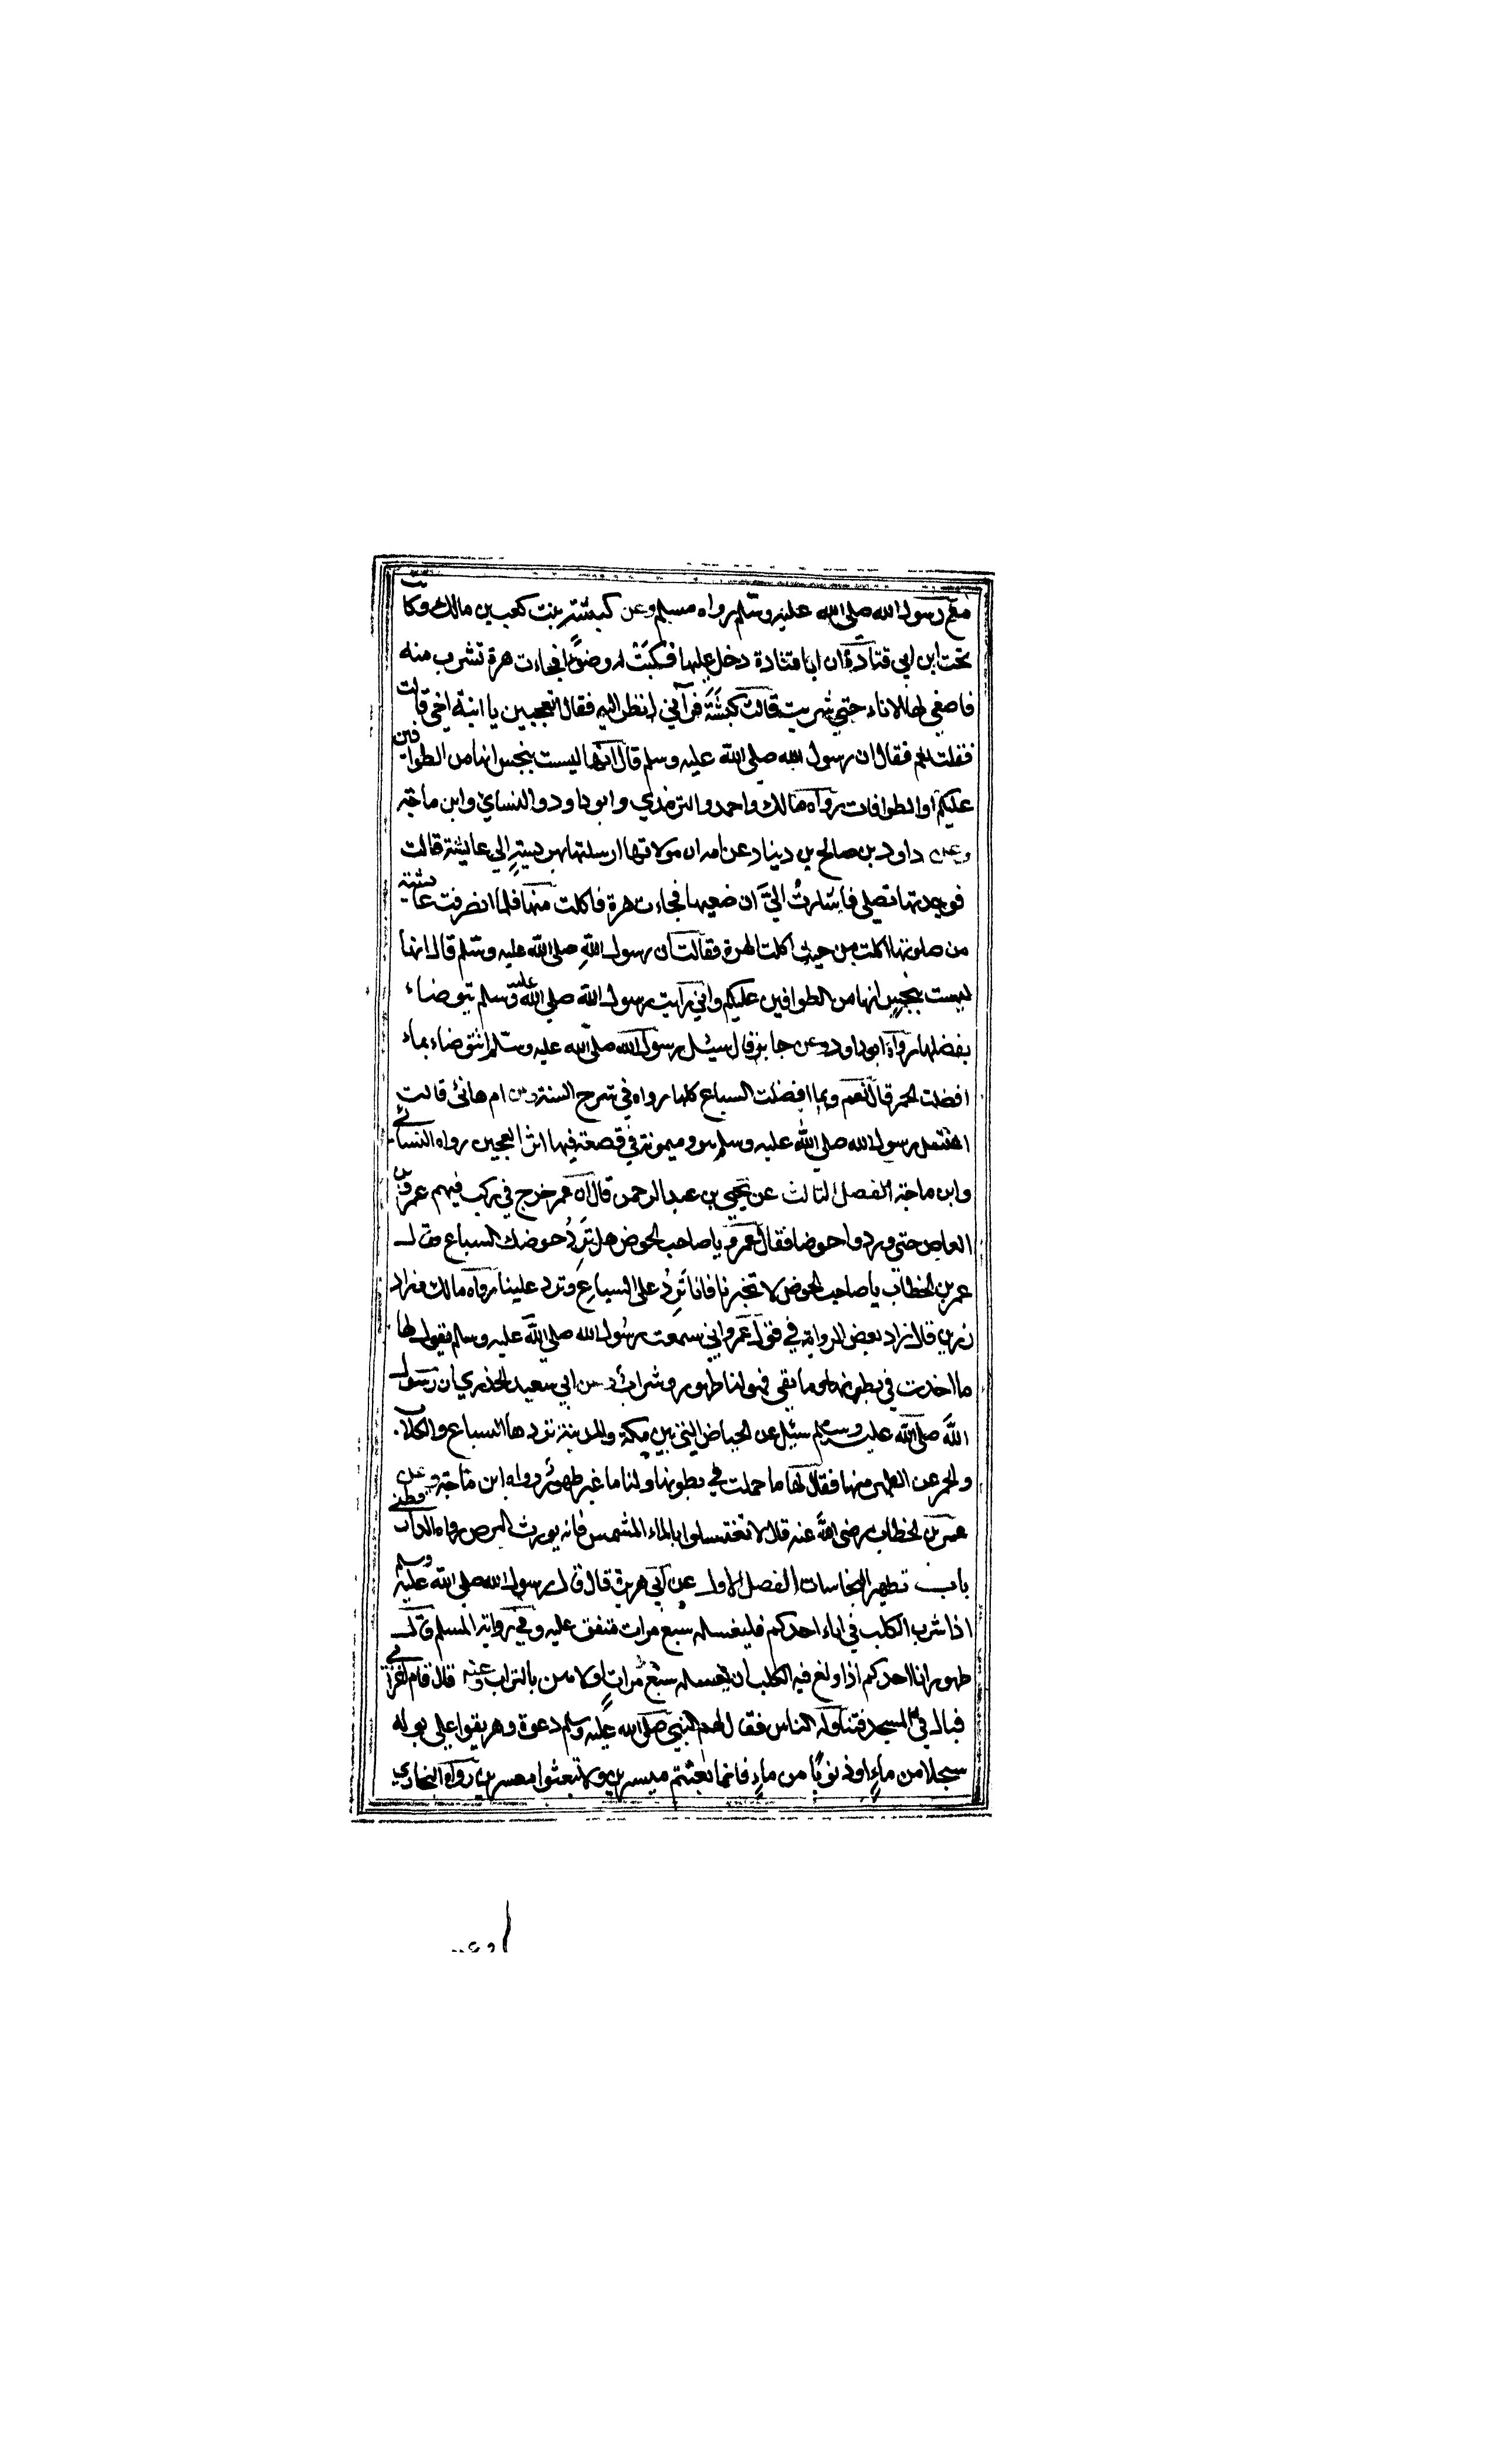 مع رسول الله صلى الله عليه وسلم رواه مسلم وعن كبشة بنت كعب بن مالك وكانت
تحت ابن ابي قتادة ان ابا قتادة دخل عليها فسكبت له وضوءا فجاءت هرة تشرب منه
فاصغى لها الاناء حتى شربت قالت كبشة فرآني انظر اليه فقال اتعجبين يا ابنة اخي قالت
فقلت نعم فقال ان رسول الله صلى الله عليه وسلم قال انها ليست بنجس انها من الطوافين
عليكم او الطوافات رواه مالك واحمد والترمذي وابو داود والنسائي وابن ماجة
وعن داود بن صالح بن دينار عن امه ان مولاتها ارسلتها بهريسة الي عايشة قالت
فوجدتها تصلي فاشارت اليّ ان ضعيها فجاءت هرة فاكلت منها فلما انصرفت عايشة
من صلوتها اكلت من حيث اكلت الهرة فقالت ان رسول الله صلى الله عليه وسلم قال انها
ليست بنجس انها من الطوافين عليكم واني رايت رسول الله صلى الله عليه وسلم يتوضاء
بفضلها رواه ابو داود وعن جابر قال سئل رسول الله صلى الله عليه وسلم انتوضاء بماء
افضلت الحمر قال نعم وبما افضلت السباع كلها رواه في شرح السنة وعن ام هانئ قالت
اغتسل رسول الله صلى الله عليه وسلم هو وميمونة في قصعة فيها اثر العجين رواه النسائي
وابن ماجة الفصل الثالث عن يحيى بن عبد الرحمن قال ان عمر خرج في ركب فيهم عمرو بن
العاص حتى وردوا حوضا فقال عمرو يا صاحب الحوض هل ترد حوضك السباع فقال
عمر بن الخطاب يا صاحب الحوض لا تخبرنا فانا نرد على السباع وترد علينا رواه مالك وزاد
زرين قال زاد بعض الرواة في قول عمر واني سمعت رسول الله صلى الله عليه وسلم يقول لها
ما اخذت في بطونها وما بقي فهو لنا طهور وشراب وعن ابي سعيد الخدري ان رسول
الله صلى الله عليه وسلم سئل عن الحياض التي بين مكة والمدينة تردها السباع والكلاب
والحمر عن الطهر منها فقال لها ما حملت في بطونها ولنا ما غبر طهور رواه ابن ماجة وعن
عمر بن الخطاب رضي الله عنه قال لا تغتسلوا بالماء المشمس فانه يورث البرص رواه الدارقطني
باب تطهير النجاسات الفصل الاول عن ابي هريرة قال قال رسول الله صلى الله عليه وسلم
اذا شرب الكلب في اناء احدكم فليغسله سبع مرات متفق عليه وفي رواية المسلم قال
طهور انا احدكم اذا ولغ فيه الكلب ان يغسله سبع مرات اولاهن بالتراب وعنه قال قام اعرابي
فبال في المسجد فتناوله الناس فقال لهم النبي صلى الله عليه وسلم دعوه وهريقوا على بوله
سجلا من ماء او ذنوبا من ماء فانما بعثتم ميسرين ولا تبعثوا معسرين رواه البخاري